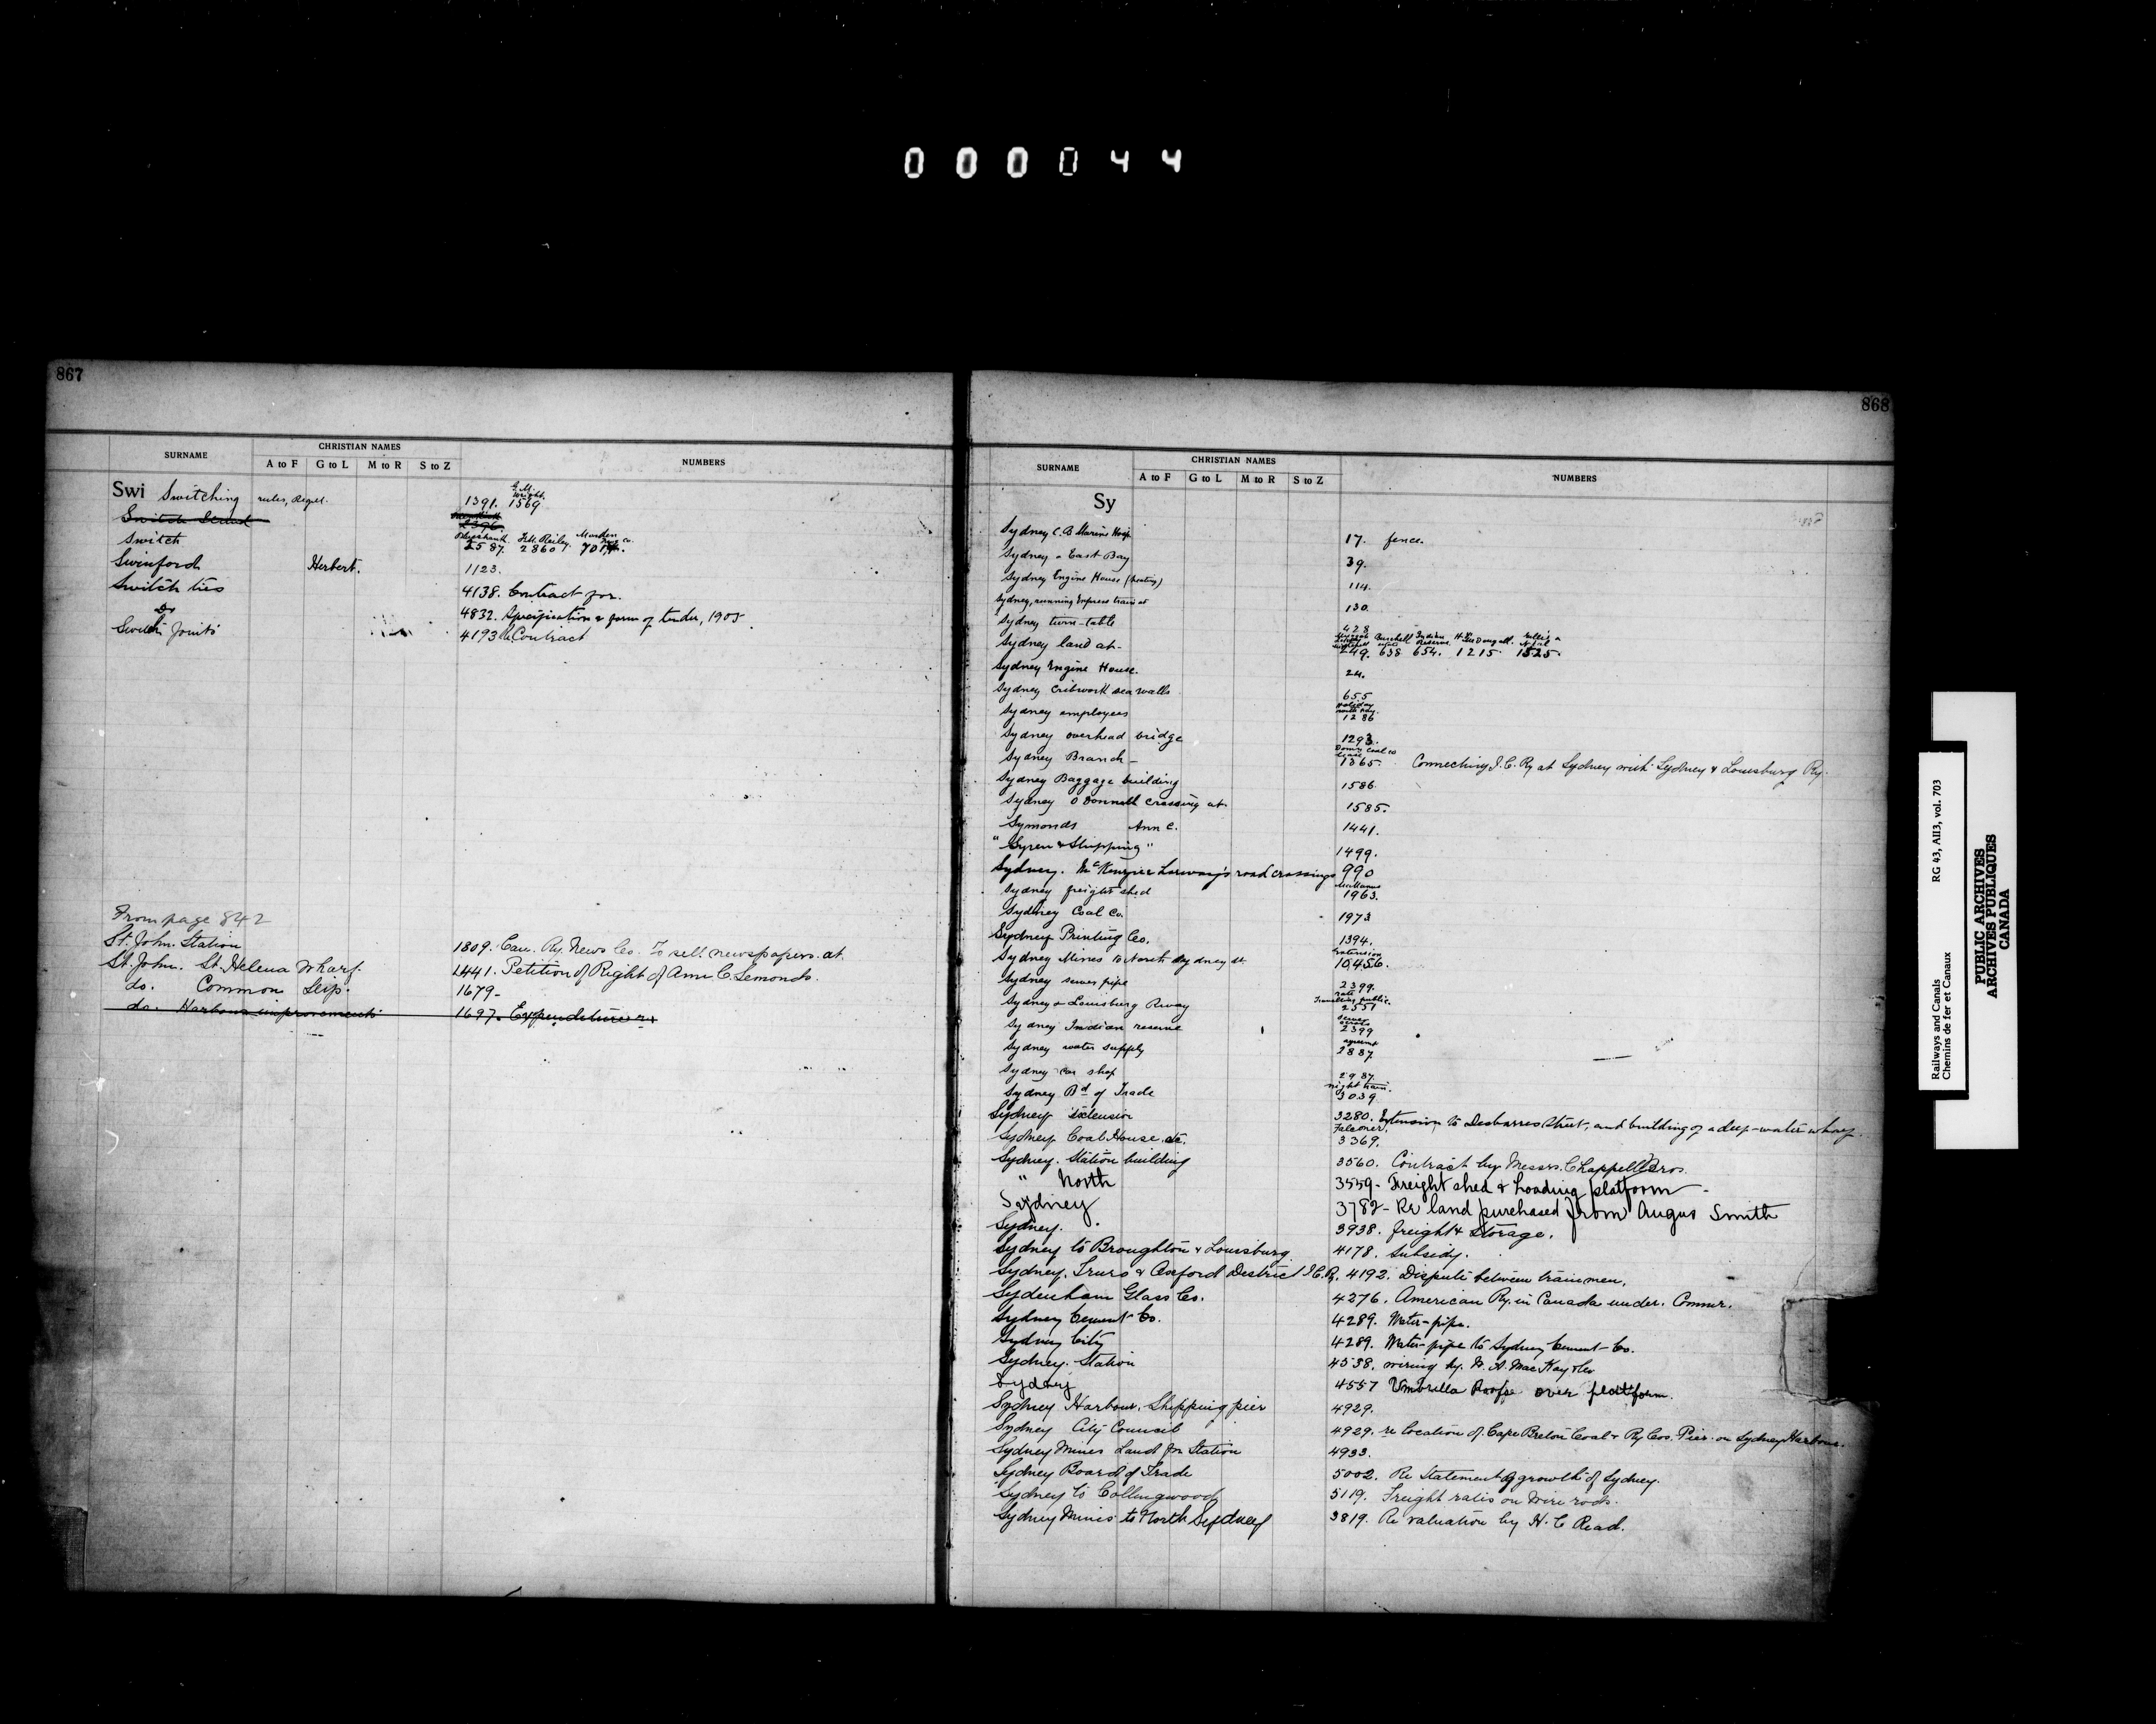 000044
867
SURNAME CHRISTIAN NAMES NUMBERS
A to F G to L M to R S to Z
Swi Switching rules, Regul. 1391. G.M. Wright. 1569
Switch 2587. F.M. Reiley. 2860
Swinford Herbert. 1123.
Switch ties 4138. Contract for.
Do 4832. Specification & form of tender, 1905
Switch Joints 4193 Contract
From page 842
St. John. Station 1809. Can. Ry. News Co. To sell newspapers at
St. John. St. Helena Wharf. 1441. Petition of Right of Ann C. Semonds.
do. Common Slip. 1679-
do. Harbour improvements 1697. Expenditure re
868
SURNAME CHRISTIAN NAMES NUMBERS
A to F G to L M to R S to Z
Sy
Sydney C.B. Marine Hosp. 17. fence.
Sydney - East Bay 39.
Sydney Engine House (heating) 114.
Sydney, running Express train at 130.
Sydney turn-table 428
Sydney land at- 249. Burchell 638 Indian Reserve. 654. H. McDougall. 1215. 1525.
Sydney Engine House. 24.
Sydney cribwork sea walls 655
Sydney employees 1286
Sydney overhead bridge 1293.
Sydney Branch- Domn. Coal Co lease 1365. Connecting I.C. Ry at Sydney with Sydney & Louisburg Ry.
Sydney Baggage building 1586.
Sydney O'Donnell crossing at- 1585.
Symonds Ann C. 1441.
"Syren & Shipping" 1499.
Sydney. McKenzie & Loreway's road crossings 990
Sydney freight shed 1963.
Sydney Coal Co. 1973
Sydney Printing Co. 1394.
Sydney Mines to North Sydney extension 10,456.
Sydney sewer pipe 2399.
Sydney & Louisburg Rway rate travelling public. 2557
Sydney Indian reserve 2399
Sydney water supply agreemt 2887.
Sydney car shop 2987.
Sydney Bd of Trade night train. 3039
Sydney extension 3280. Extension to Desbarres Street, and building of a deep-water wharf.
Sydney Coal House etc. Falconer. 3369.
Sydney. Station building 3560. Contract by Messrs. Chappell Bros.
" North 3559- Freight shed & Loading platform-
Sydney 3782- Re land purchased from Angus Smith
Sydney. 3938. freight & Storage.
Sydney to Broughton & Louisburg 4178. Subsidy.
Sydney, Truro & Oxford District I.C.R. 4192. Dispute between trainmen.
Sydenham Glass Co. 4276. American Ry. in Canada under. Commr.
Sydney Cement Co. 4289. Water-pipe.
Sydney City 4289. Water-pipe to Sydney Cement Co.
Sydney. Station 4538. wiring by. N. A. MacKay & Co
Sydney 4557 Umbrella Roofs over platform.
Sydney Harbour. Shipping pier 4929.
Sydney City Council 4929. re location of Cape Breton Coal & Ry Cos. Pier on Sydney Harbour.
Sydney Mines Land for Station 4933.
Sydney Board of Trade 5002. Re Statement of growth of Sydney.
Sydney to Collingwood 5119. Freight rates on Wire rods.
Sydney Mines to North Sydney 3819. Re valuation by H. C Read.
Railways and Canals RG 43, AII3, vol. 703
Chemins de fer et Canaux
PUBLIC ARCHIVES
ARCHIVES PUBLIQUES
CANADA